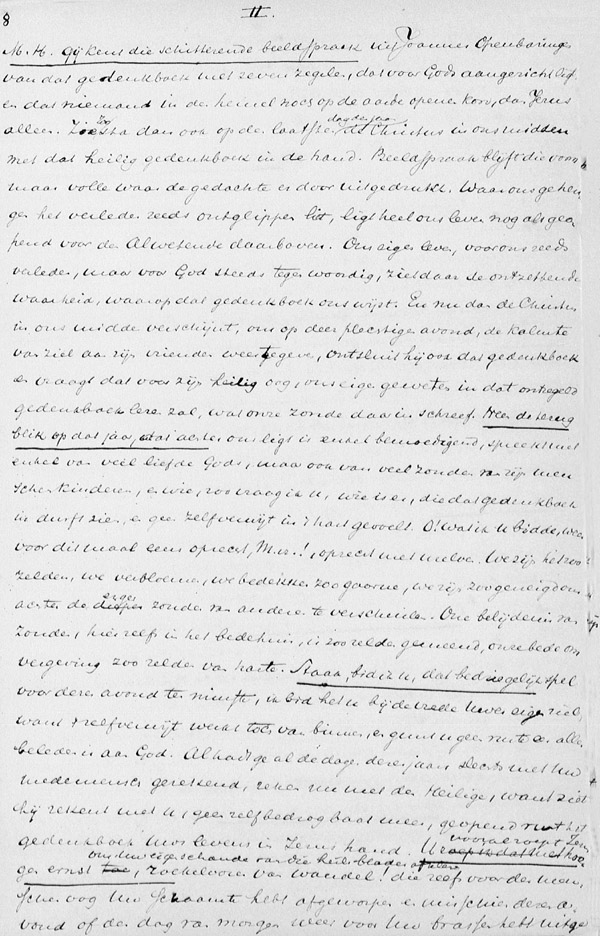 8 II.
M. H. Gij kent die schitterende beeldspraak uit Joannes Openbaringe
van dat gedenkboek met zeven zegels, dat voor Gods aangezicht ligt
en dat niemand in de hemel noch op de aarde openen kon, dan Jezus
alleen. Zoo sta dan ook op deze laatste dag des jaars de Christus in ons midden
met dat heilig gedenkboek in de hand. Beeldspraak blijft die vorm
maar volle waarde gedachte er door uitgedrukt. Waar ons geheu
gen het verleden reeds ontglippen liet, ligt heel ons leven nog als geo
pend voor den Alwetende daarboven. Ons eigen leven, voor ons reeds
verleden, maar voor God steeds tegenwoordig, ziet daar de ontzettende
waarheid, waarop dat gedenkboek ons wijst. En nu dan de Christus
in ons midden verschijnt, ons op deze plechtige avond, de kalmte
van ziel aan zijn vrienden weertegeven, ontsluit hij ook dat gedenkboek
en vraagt dat voor zijn heilig oog, ons eigen geweten in dat ontzegeld
gedenkboek lezen zal, wat onze zonde daarin schreef. Neen de terug
blik op dat jaar, dat achter ons ligt is enkel bemoedigend, spreekt niet
enkel van veel liefde Gods, maar ook van veel zonde van zijn men
schenkinderen, en wie, zoo vraag ik u, wie is er, die dat gedenkboek
in durft zien, en geen zelfverwijt in 't hart gevoelt. O! wat ik u bidde, wees
voor ditmaal eens oprecht, M. H.!, oprecht met uzelve. We zijn het zoo
zelden, we verbloemen, we bedekken zoo gaarne, we zijn zoo geneigd om ons
achter de erger zonde van anderen te verschuilen. Onze belijdenis van
zonde, hier zelfs in het bedehuis, is zoo zelden gemeend, onze bede om
vergeving zoo zelden van harte. Staak, bid ik u, dat bedriegelijk spel
voor dezen avond ten minste, ik bid het u bij de vrede Uwer eigen ziel,
want 't zelfverwijt werkt toch van binnen, en gunt u geen rust eer alles
beleden is aan God. Al hadt ge al de dagen dezes jaars slechts met Uw
medemensch gerekend, reken nu met den Heilige, want ziet
hij rekent met u, geen zelfbedrog baat meer, geopend rust het
gedenkboek Uws levens in Jezus hand. U vooral roept Jezus
om uw eigen schande van die heilige bladen af te lezen
gen ernst toe, roekeloozen van wandel! die zelfs voor der men
schen oog Uw schaamte hebt afgeworpen en misschien dezen a
vond of den dag van morgen weer voor Uw brassen hebt uitge